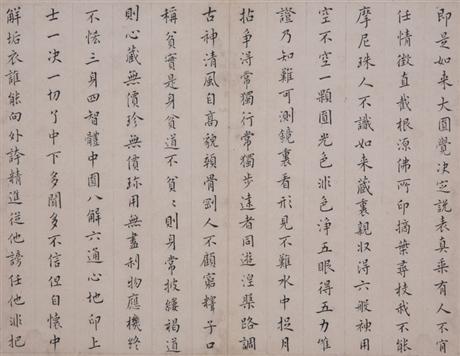 即是如來大圓覺決定說表真乘有人不肯
任情徵直截根源佛所印摘葉尋枝我不能
摩尼珠人不識如來藏裏親収得六般神用
空不空一顆圓光色非色淨五眼得五力唯
證乃知難可測鏡裏看形見不難水中捉月
拈爭得常獨行常獨步達者同遊涅槃路調
古神清風自高貌顇骨剛人不顧窮釋子口
稱貧實是身貧道不貧〻則身常披縷褐道
則心藏無價珍無價珍用無盡利物應機終
不恡三身四智體中圓八解六通心地印上
士一决一切了中下多聞多不信但自懷中
解垢衣誰能向外誇精進從他謗任他非把